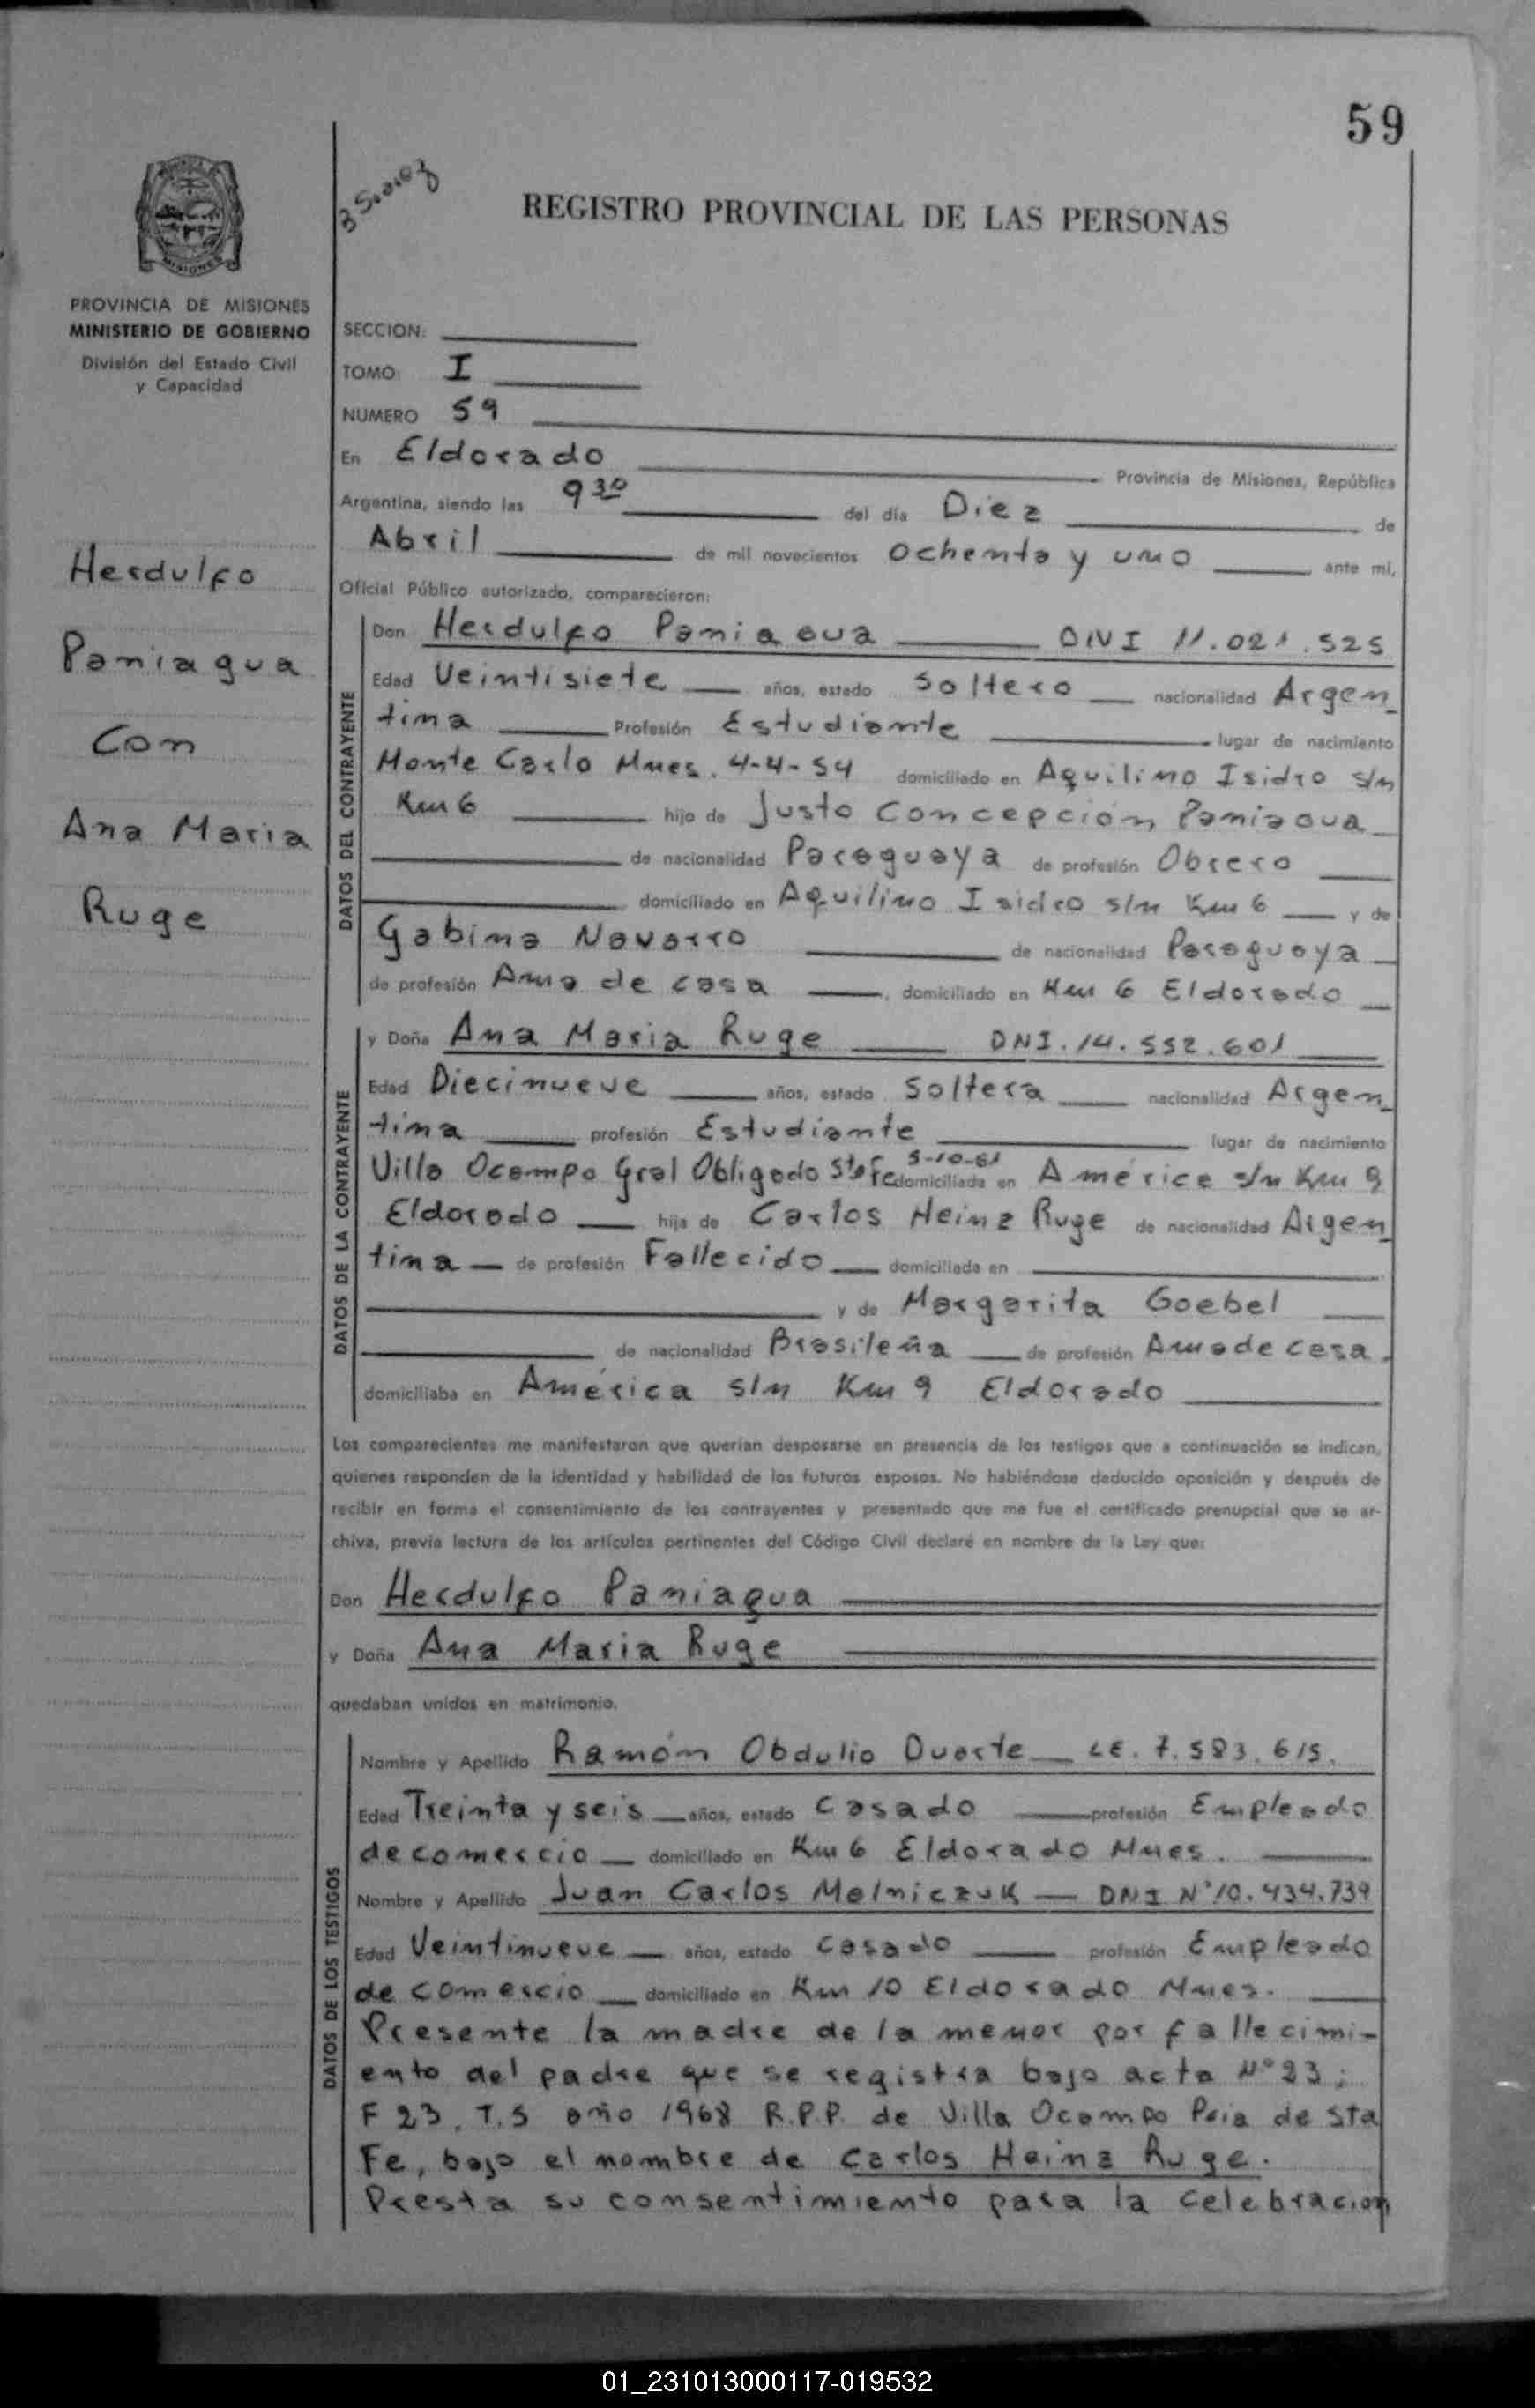 59
REGISTRO PROVINCIAL DE LAS PERSONAS
MISIONES
PROVINCIA DE MISIONES
MINISTERIO DE GOBIERNO
División del Estado Civil
y Capacidad
Herdulfo
Paniagua
Con
Ana Maria
Ruge
SECCION:
TOMO: I
NUMERO 59
En Eldorado Provincia de Misiones, República
Argentina, siendo las 9 30 del día Diez de
Abril de mil novecientos ochenta y uno ante mí,
Oficial Público autorizado, comparecieron:
DATOS DEL CONTRAYENTE
Don Herdulfo Paniagua DNI 11.021.525
Edad Veintisiete años, estado Soltero nacionalidad Argen
tina Profesión Estudiante lugar de nacimiento
Monte Carlo Mnes. 4-4-54 domiciliado en Aquilino Isidro s/n
Km 6 hijo de Justo Concepción Paniagua
de nacionalidad Paraguaya de profesión Obrero
domiciliado en Aquilino Isidro s/n Km 6 y de
Gabina Navarro de nacionalidad Paraguaya
de profesión Ama de casa, domiciliado en Km 6 Eldorado
DATOS DE LA CONTRAYENTE
y Doña Ana Maria Ruge DNI. 14.552.601
Edad Diecinueve años, estado Soltera nacionalidad Argen
tina profesión Estudiante lugar de nacimiento
Villa Ocampo Gral Obligado Sta Fe 5-10-61 domiciliada en América s/n Km 9
Eldorado hija de Carlos Heinz Ruge de nacionalidad Argen
tina de profesión Fallecido domiciliada en
y de Margarita Goebel
de nacionalidad Brasileña de profesión Ama de casa.
domiciliaba en América s/n Km 9 Eldorado
Los comparecientes me manifestaron que querían desposarse en presencia de los testigos que a continuación se indican,
quienes responden de la identidad y habilidad de los futuros esposos. No habiéndose deducido oposición y después de
recibir en forma el consentimiento de los contrayentes y presentado que me fue el certificado prenupcial que se ar-
chiva, previa lectura de los artículos pertinentes del Código Civil declaré en nombre de la Ley que:
Don Herdulfo Paniagua
y Doña Ana Maria Ruge
quedaban unidos en matrimonio.
DATOS DE LOS TESTIGOS
Nombre y Apellido Ramón Obdulio Duarte LE. 7.583.615.
Edad Treinta y seis años, estado Casado profesión Empleado
de comercio domiciliado en Km 6 Eldorado Mnes.
Nombre y Apellido Juan Carlos Melniczuk DNI N° 10.434.739
Edad Veintinueve años, estado Casado profesión Empleado
de comercio domiciliado en Km 10 Eldorado Mnes.
Presente la madre de la menor por fallecimi-
ento del padre que se registra bajo acta N° 23;
F 23. T. 5 año 1968 R.P.P. de Villa Ocampo Pcia de Sta
Fe, bajo el nombre de Carlos Heinz Ruge.
Presta su consentimiento para la celebracion
01_231013000117-019532